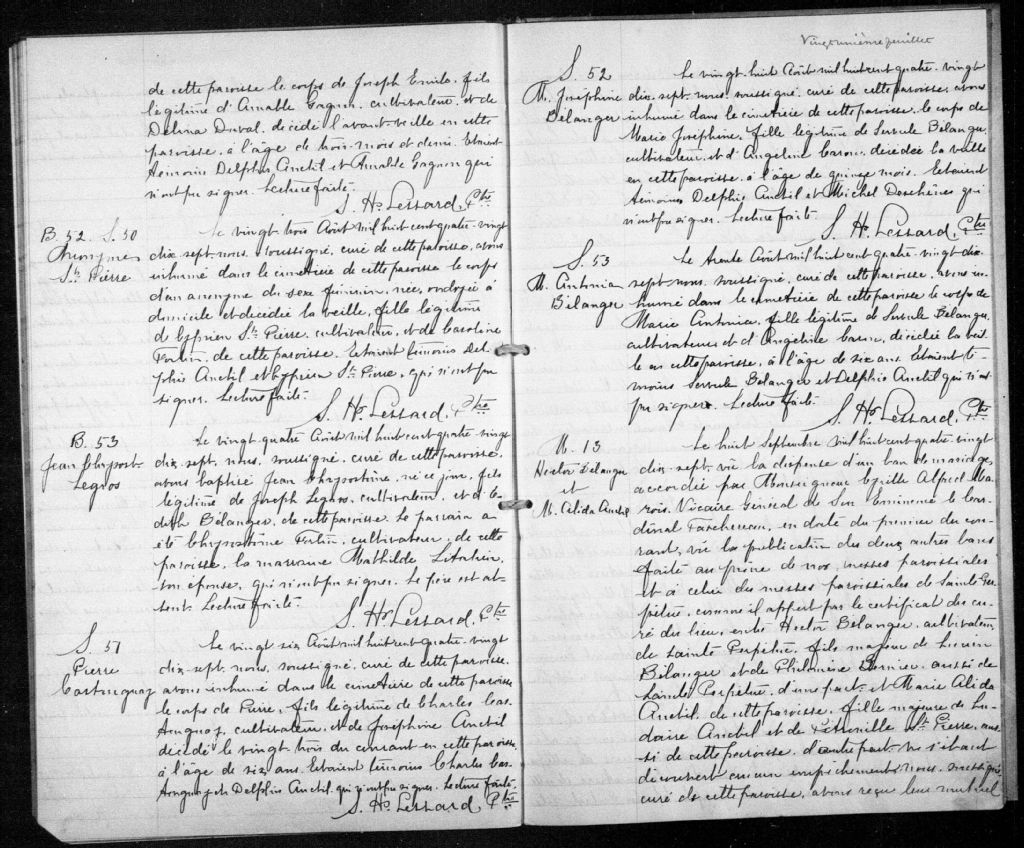 de cette paroisse le corps de Joseph Emile, fils
légitime d'Amable Gagnon, cultivateur, et de
Délina Duval, décédé l'avant-veille en cette
paroisse, à l'âge de trois mois et demi. Etaient
témoins Delphis Anctil et Amable Gagnon qui
n'ont pu signer. Lecture faite.
S. Hs. Lessard, Ptre
B. 52. S. 50
Anonyme
St. Pierre
Le vingt-trois Août mil huit cent quatre-vingt
dix-sept, nous, soussigné, curé de cette paroisse, avons
inhumé dans le cimetière de cette paroisse le corps
d'un anonyme du sexe féminin, née, ondoyée à
domicile et décédée la veille, fille légitime
de Cyprien St. Pierre, cultivateur, et de Caroline
Fortin, de cette paroisse. Etaient témoins Del-
phis Anctil et Cyprien St. Pierre, qui n'ont pu
signer. Lecture faite.
S. Hs. Lessard, Ptre
B. 53
Jean Chrysost-
Legros
Le vingt-quatre Août mil huit cent quatre-vingt
dix-sept, nous, soussigné, curé de cette paroisse,
avons baptisé Jean Chrysostôme, né ce jour, fils
légitime de Joseph Legros, cultivateur, et d'E-
dith Bélanger, de cette paroisse. Le parrain a
été Chrysostôme Fortin, cultivateur, de cette
paroisse, la marraine Mathilde
son épouse, qui n'ont pu signer. Le père est ab-
sent. Lecture faite.
S. Hs. Lessard, Ptre
S. 51
Pierre
Castonguay
Le vingt-six Août mil huit cent quatre-vingt
dix-sept, nous, soussigné, curé de cette paroisse,
avons inhumé dans le cimetière de cette paroisse
le corps de Pierre, fils légitime de Charles Cas-
tonguay, cultivateur, et de Joséphine Anctil
décédé le vingt-trois du courant en cette paroisse,
à l'âge de six ans. Etaient témoins Charles Cas-
tonguay et Delphis Anctil, qui n'ont pu signer. Lecture faite.
S. Hs. Lessard, Ptre
Vingt-unième feuillet
S. 52
M. Joséphine
Bélanger
Le vingt-huit Août mil huit cent quatre-vingt
dix-sept, nous, soussigné, curé de cette paroisse, avons
inhumé dans le cimetière de cette paroisse, le corps de
Marie Joséphine, fille légitime de Servule Bélanger,
cultivateur, et d'Angeline Caron, décédée la veille
en cette paroisse, à l'âge de quinze mois. Etaient
témoins Delphis Anctil et Michel Deschênes qui
n'ont pu signer. Lecture faite.
S. Hs. Lessard, Ptre
S. 53
M. Antonia
Bélanger
Le trente Août mil huit cent quatre-vingt dix-
sept, nous, soussigné, curé de cette paroisse, avons in-
humé dans le cimetière de cette paroisse le corps de
Marie Antonia, fille légitime de Servule Bélanger,
cultivateur, et d'Angeline Caron, décédée la veil-
le en cette paroisse, à l'âge de six ans. Etaient té-
moins Servule Bélanger et Delphis Anctil qui n'ont
pu signer. Lecture faite.
S. Hs. Lessard, Ptre
M. 13
Hector Bélanger
et
M. Alida Anctil
Le huit Septembre mil huit cent quatre-vingt
dix-sept, vû la dispense d'un ban de mariage,
accordée par Monseigneur Cyrille Alfred Ma-
rois, Vicaire Général de Son Eminence le Car-
dinal Taschereau, en date du premier du cou-
rant, vû la publication des deux autres bans
faite au prône de nos messes paroissiales
et à celui des messes paroissiales de Sainte Per-
pétue, comme il appert par le certificat du cu-
ré du lieu, entre Hector Bélanger, cultivateur,
de Sainte Perpétue, fils majeur de Lucien
Bélanger et de Philomène Bernier, aussi de
Sainte Perpétue, d'une part, et Marie Alida
Anctil, de cette paroisse, fille majeure de Lu-
daire Anctil et de Pétronille St. Pierre, aus-
si de cette paroisse, d'autre part, ne s'étant
découvert aucun empêchement, nous, soussigné,
curé de cette paroisse, avons reçu leur mutuel